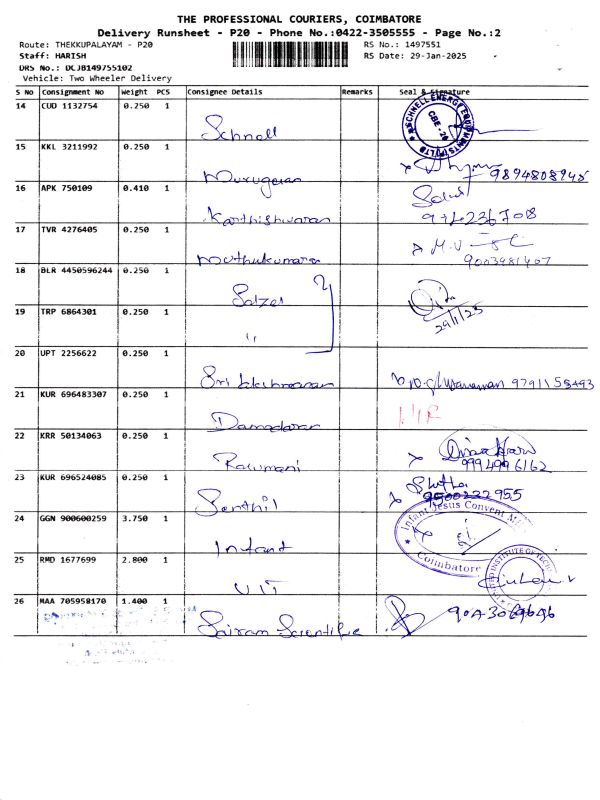 THE PROFESSIONAL COURIERS, COIMBATORE
Delivery Runsheet - P20 - Phone No.:0422-3505555 - Page No.:2
Route: THEKKUPALAYAM - P20 RS No.: 1497551
Staff: HARISH RS Date: 29-Jan-2025
DRS No.: DCJB149755102
Vehicle: Two Wheeler Delivery
S No Consignment No Weight PCS Consignee Details Remarks Seal & Signature
14 CUD 1132754 0.250 1 Schnell SCHNELL ENERGY EQUIPMENTS (P) LTD CBE - 20
15 KKL 3211992 0.250 1 Murugesan 9894808945
16 APK 750109 0.410 1 Karthishwaran
17 TVR 4276405 0.250 1 Muthukumaran M.U 9003981407
18 BLR 4450596244 0.250 1 Salzer
19 TRP 6864301 0.250 1 " 29/1/25
20 UPT 2256622 0.250 1 Sri Lakshmanan
21 KUR 696483307 0.250 1 Damodaran
22 KRR 50134063 0.250 1 Rukumani 9994996162
23 KUR 696524085 0.250 1 Senthil 9500222955
24 GGN 900600259 3.750 1 Infant Infant Jesus Convent Coimbatore
25 RMD 1677699 2.800 1 UIT INSTITUTE OF
26 MAA 705958170 1.400 1 Sairam Scientific